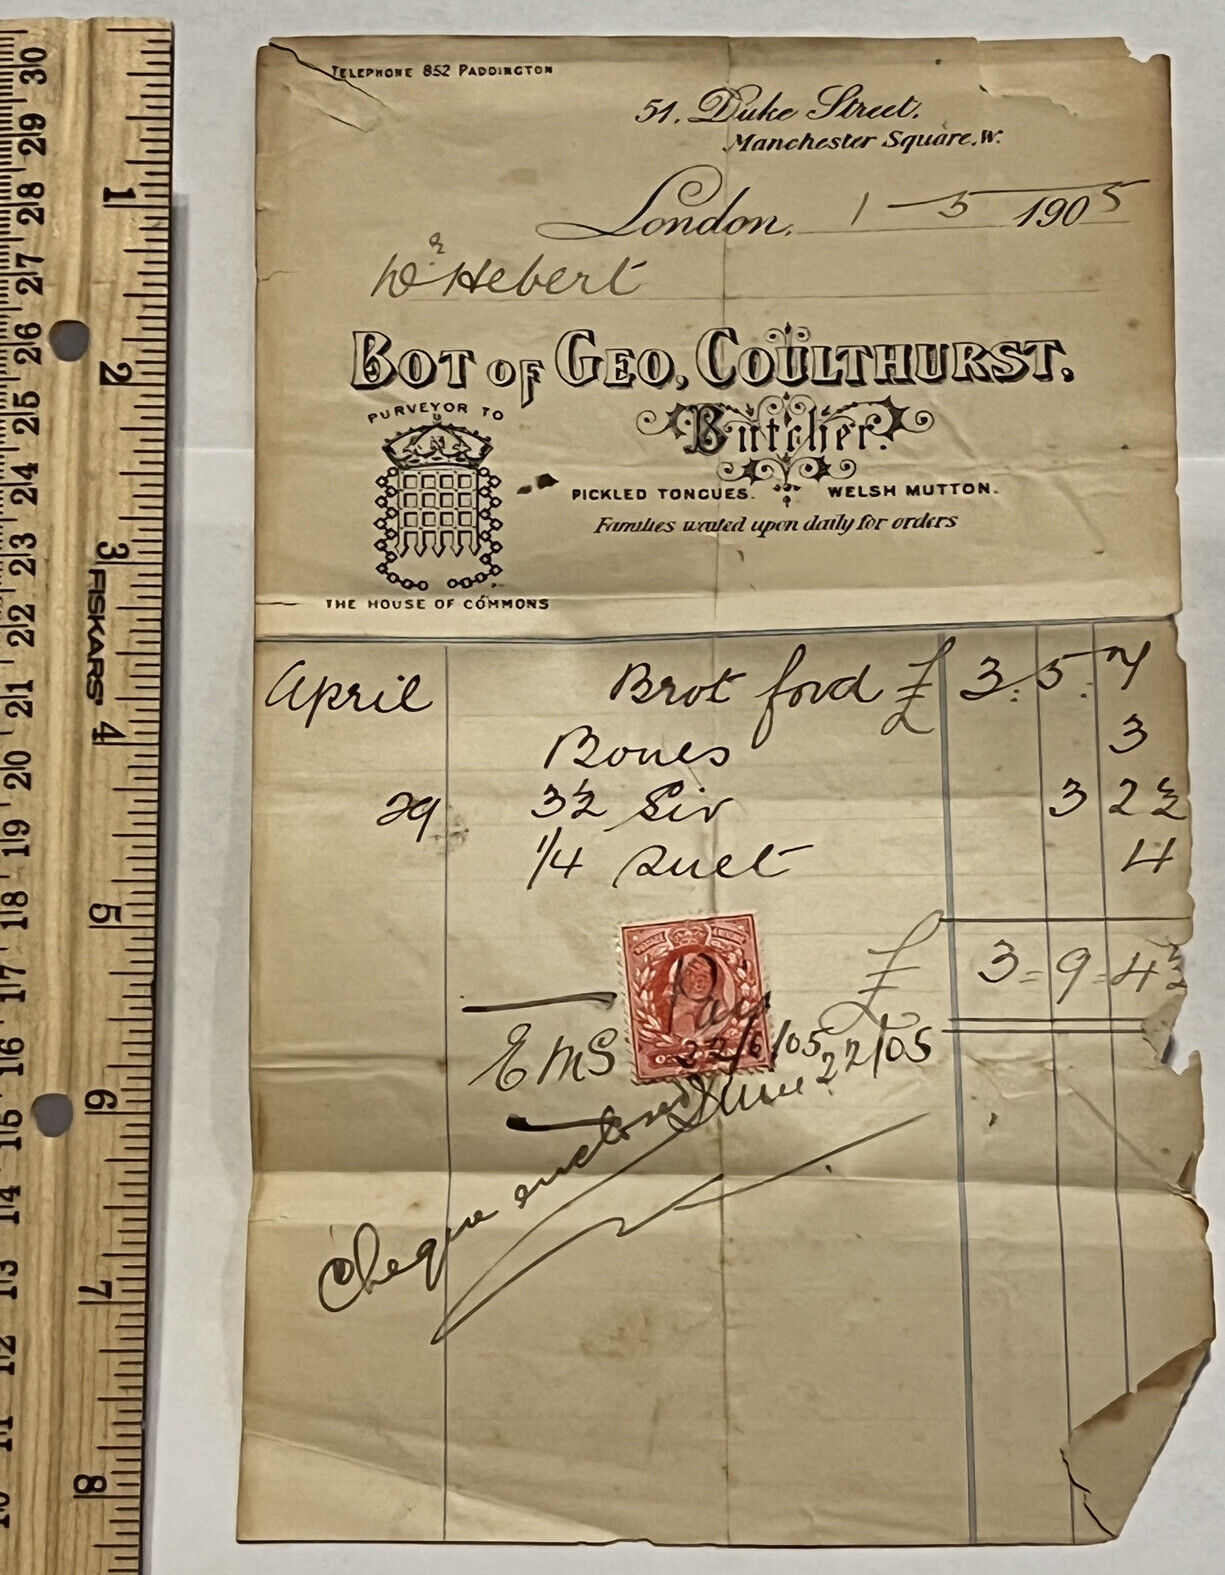 TELEPHONE 852 PADDINGTON
51. Duke Street.
Manchester Square. W.
London. 1-5 1905
Dr Hebert
BOT OF GEO. COULTHURST.
PURVEYOR TO
Butcher.
PICKLED TONGUES. WELSH MUTTON.
Families waited upon daily for orders
THE HOUSE OF COMMONS
April Brot ford £ 3.5.7
Bones 3
29 3½ Sir 3 2½
1/4 Suet 4
£ 3=9=4½
Paid
EMS 22/6/05
June 22/05
Cheque enclosed
FISKARS
1
2
3
4
5
6
7
8
30
29
28
27
26
25
24
23
22
21
20
19
18
17
16
15
14
13
12
11
10